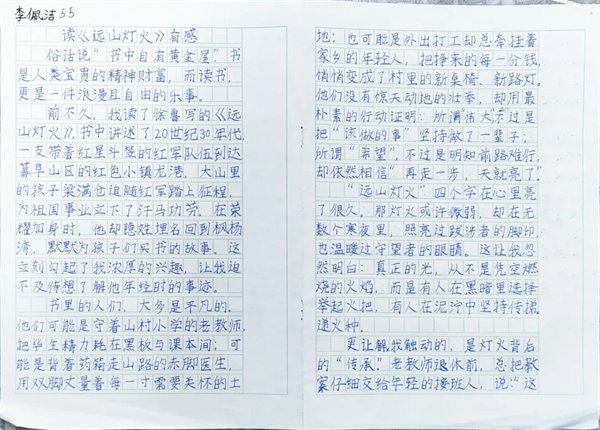 李佩洁 5.5
读《远山灯火》有感
俗话说“书中自有黄金屋”，书
是人类宝贵的精神财富，而读书，
更是一件浪漫且自由的乐事。
前不久，我读了徐鲁写的《远
山灯火》，书中讲述了20世纪30年代，
一支带着红星斗笠的红军队伍到达
幕阜山区的红色小镇龙港，大山里
的孩子梁满仓追随红军踏上征程，
为祖国事业立下了汗马功劳。在荣
耀加身时，他却隐姓埋名回到枫杨
湾，默默为孩子们买书的故事。这
立刻勾起了我浓厚的兴趣，让我迫
不及待想了解他年经时的事迹。
书里的人们，大多是平凡的。
他们可能是守着山村小学的老教师，
把毕生精力耗在黑板与课本间；可
能是背着药箱走山路的赤脚医生，
用双脚丈量着每一寸需要关怀的土
地；也可能是外出打工却总牵挂着
家乡的年轻人，把挣来的每一分钱，
悄悄变成了村里的新桌椅、新路灯。
他们没有惊天动地的壮举，却用最
朴素的行动证明：所谓“伟大”不过是
把“该做的事”坚持做了一辈子；
所谓“希望”，不过是明知前路难行，
却依然相信“再走一步，天就亮了”。
“远山灯火”四个字在心里亮
了很久。那灯火或许微弱，却在无
数个寒夜里，照亮过跋涉者的脚印，
也温暖过守望者的眼睛。这让我忽
然明白：真正的光，从不是凭空燃
烧的火焰，而是有人在黑暗里选择
举起火把，有人在泥泞中坚持传递
递火种。
更让我触动的，是灯火背后
的“传承”。老教师退休前，总把教
案仔细交给年轻的接班人，说：“这